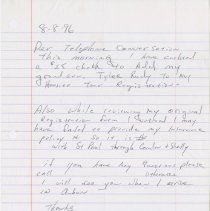 8-8-96
Per Telephone Conversation
This morning I have enclosed
a $25 check to Add my
good son, Tyler Rudy to my
Honor Tour Registration.
Also while reviewing my original
Registration form I noticed I may
have failed to provide my insurance
policy #. So it is
with St Paul through
if you have any questions please
call otherwise
I will see you when I arrive
in
Thanks